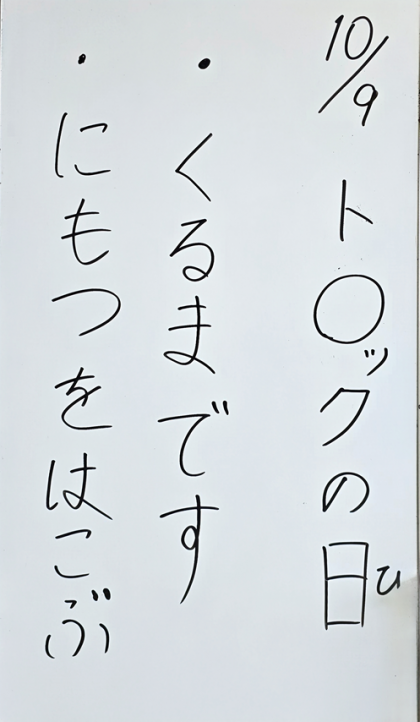 10/9 ト〇ックの日
ひ
・くるまです
・にもつをはこぶ